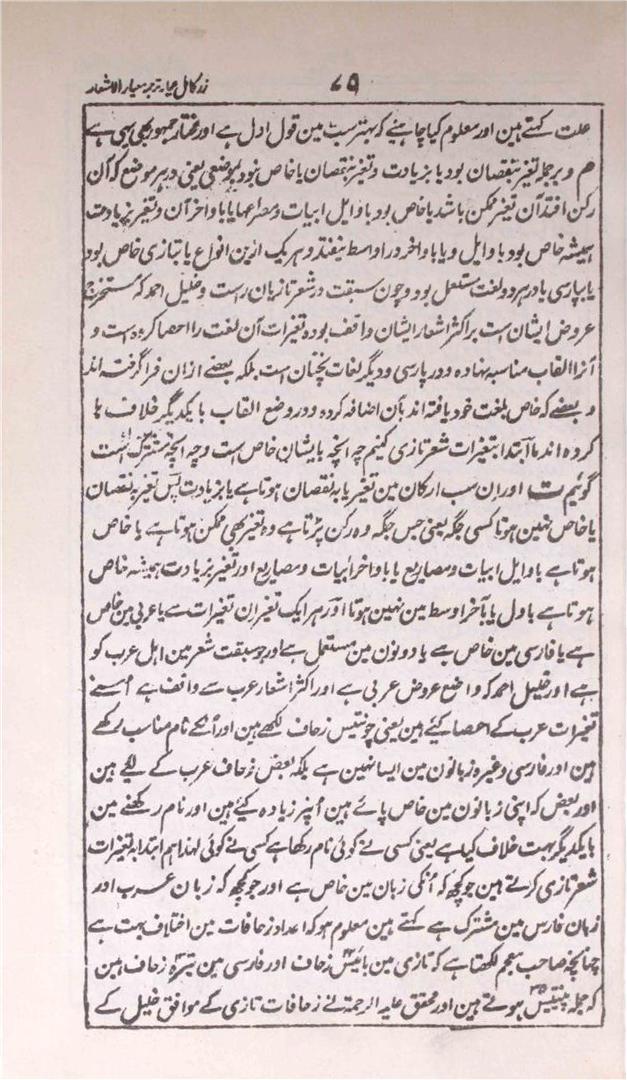 زر کامل عیار ترجمہ معیار الاشعار
۷۵
علت کہتے ہین اور معلوم کیا چاہیئے کہ بہتر سب مین قول اول ہے اور مختار جمہور بھی یہی ہے
م و بر جملہ تغیر بنقصان بود یا بزیادت و تغیر بنقصان یا خاص نبود بموضعی یعنی در ہر موضع کہ آن
رکن افتد آن تغیر ممکن باشد یا خاص بود باوایل ابیات و مصراعہا یا باواخر آن و تغیر بزیادت
ہمیشہ خاص بود باوایل و یا باواخر و در اواسط نیفتد و ہر یک ازین انواع یا بتازی خاص بود
یا بپارسی یا در ہر دو لغت مستعمل بود و چون سبقت در شعر تازیان راست و خلیل احمد کہ مستخرج
عروض ایشان است بر اکثر اشعار ایشان واقف بودہ تغیرات آن لغت را احصا کردہ است و
آنرا القاب مناسبہ نہادہ و در پارسی و دیگر لغات نچنان است بلکہ بعضے ازان فرا گرفتہ اند
و بعضے کہ خاص بلغت خود یافتہ اند بآن اضافہ کردہ و در وضع القاب با یکدیگر خلاف ہا
کردہ اند ما ابتدا بتغیرات شعر تازی کنیم چہ انچہ بایشان خاص است و چہ انچہ مشترک است
گوئیم ت اور ان سب ارکان مین تغیر یا بہ نقصان ہوتا ہے یا بزیادت پس تغیر بہ نقصان
یا خاص نہین ہوتا کسی جگہ یعنی جس جگہ وہ رکن پڑتا ہے وہ تغیر بھی ممکن ہوتا ہے یا خاص
ہوتا ہے باوایل ابیات و مصاریع یا باواخر ابیات و مصاریع اور تغیر بزیادت ہمیشہ خاص
ہوتا ہے باول یا بآخر اوسط مین نہین ہوتا اور ہر ایک تغیر ان تغیرات سے یا عربی مین خاص
ہے یا فارسی مین خاص ہے یا دونون مین مستعمل ہے اور جو سبقت شعر مین اہل عرب کو
ہے اور خلیل احمد کہ واضع عروض عربی ہے اور اکثر اشعار عرب سے واقف ہے اُسنے
تغیرات عرب کے احصا کیئے ہین یعنی چونتیس زحاف لکھے ہین اور اُنکے نام مناسب رکھے
ہین اور فارسی وغیرہ زبانون مین ایسا نہین ہے بلکہ بعض زحاف عرب کے لیئے ہین
اور بعض کہ اپنی زبانون مین خاص پائے ہین اُنپر زیادہ کیئے ہین اور نام رکھنے مین
بایکدیگر بہت خلاف کیا ہے یعنی کسی نے کوئی نام رکھا ہے کسی نے کوئی لہذا ہم ابتدا بہ تغیرات
شعر تازی کرتے ہین جو کچھ کہ اُنکی زبان مین خاص ہے اور جو کچھ کہ زبان عرب اور
زبان فارس مین مشترک ہے کہتے ہین معلوم ہو کہ اعداد زحافات مین اختلاف بہت ہے
چنانچہ صاحب معجم لکھتا ہے کہ تازی مین بائیس ۲۲ زحاف اور فارسی مین تیرہ ۱۳ زحاف ہین
کہ جملہ پینتیس ۳۵ ہوتے ہین اور محقق علیہ الرحمۃ نے زحافات تازی کے موافق خلیل کے